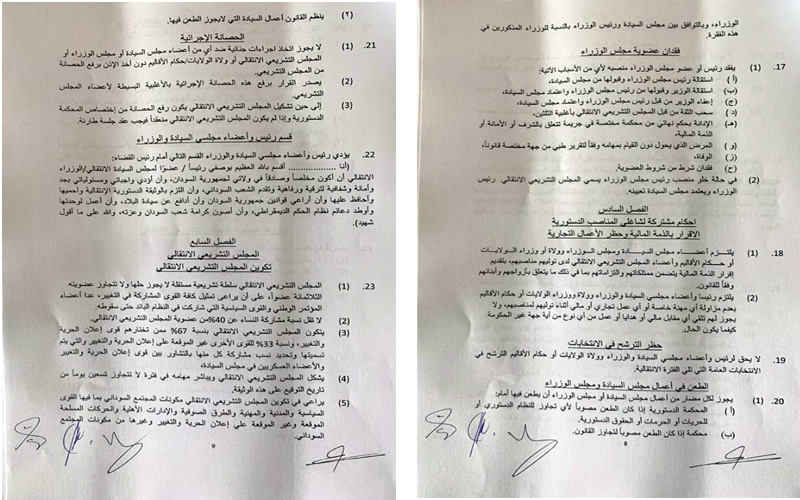 الوزراء، وبالتوافق بين مجلس السيادة ورئيس الوزراء بالنسبة للوزراء المذكورين في
هذه الفقرة.
فقدان عضوية مجلس الوزراء
17. (1) يفقد رئيس أو عضو مجلس الوزراء منصبه لأي من الأسباب الآتية:
(أ) استقالة رئيس مجلس الوزراء وقبولها من مجلس السيادة،
(ب) استقالة الوزير وقبولها من رئيس الوزراء واعتماد مجلس السيادة،
(ج) إعفاء الوزير من قبل رئيس الوزراء واعتماد مجلس السيادة،
(د) سحب الثقة من قبل المجلس التشريعي الانتقالي بأغلبية الثلثين،
(هـ) الإدانة بحكم نهائي من محكمة مختصة في جريمة تتعلق بالشرف أو الأمانة أو
الذمة المالية،
(و) المرض الذي يحول دون القيام بمهامه وفقاً لتقرير طبي من جهة مختصة قانوناً،
(ز) الوفاة،
(ح) فقدان شرط من شروط العضوية.
(2) في حالة خلو منصب رئيس مجلس الوزراء يسمي المجلس التشريعي الانتقالي رئيس
الوزراء ويعتمد مجلس السيادة تعيينه.
الفصل السادس
أحكام مشتركة لشاغلي المناصب الدستورية
الإقرار بالذمة المالية وحظر الأعمال التجارية
18. (1) يلتزم أعضاء مجلس السيادة ومجلس الوزراء وولاة أو وزراء الولايات
أو حكام الأقاليم وأعضاء المجلس التشريعي الانتقالي لدى توليهم مناصبهم، بتقديم
إقرار الذمة المالية يتضمن ممتلكاتهم والتزاماتهم بما في ذلك ما يتعلق بأزواجهم وأبنائهم
وفقاً للقانون.
(2) يلتزم رئيسا وأعضاء مجلسي السيادة والوزراء وولاة ووزراء الولايات أو حكام الأقاليم
بعدم مزاولة أي مهنة خاصة أو أي عمل تجاري أو مالي أثناء توليهم لمناصبهم، ولا
يجوز لهم تلقي أي مقابل مالي أو هدايا أو عمل من أي نوع من أية جهة غير الحكومة
كيفما يكون الحال.
حظر الترشح في الانتخابات
19. لا يحق لرئيس وأعضاء مجلسي السيادة والوزراء وولاة الولايات أو حكام الأقاليم الترشح في
الانتخابات العامة التي تلي الفترة الانتقالية.
الطعن في أعمال مجلس السيادة ومجلس الوزراء
20. (1) يجوز لكل مضار من أعمال مجلس السيادة أو مجلس الوزراء أن يطعن فيها أمام:
(أ) المحكمة الدستورية إذا كان الطعن مصوباً لأي تجاوز للنظام الدستوري أو
للحريات أو الحرمات أو الحقوق الدستورية.
(ب) محكمة إذا كان الطعن مصوباً لتجاوز القانون.
8
(2) ينظم القانون أعمال السيادة التي لايجوز الطعن فيها.
الحصانة الإجرائية
21. (1) لا يجوز اتخاذ اجراءات جنائية ضد أي من أعضاء مجلس السيادة أو مجلس الوزراء أو
المجلس التشريعي الانتقالي أو ولاة الولايات/حكام الأقاليم دون أخذ الإذن برفع الحصانة
من المجلس التشريعي.
(2) يصدر القرار برفع هذه الحصانة الإجرائية بالأغلبية البسيطة لأعضاء المجلس
التشريعي.
(3) إلى حين تشكيل المجلس التشريعي الانتقالي يكون رفع الحصانة من إختصاص المحكمة
الدستورية وإذا لم يكون المجلس التشريعي منعقداً فيجب عقد جلسة طارئة.
قسم رئيس وأعضاء مجلسي السيادة والوزراء
22. يؤدي رئيس وأعضاء مجلسي السيادة والوزراء القسم التالي أمام رئيس القضاء:
(أنا ................... أقسم بالله العظيم بوصفي رئيساً / عضواً لمجلس السيادة الانتقالي/الوزراء
الانتقالي أن أكون مخلصاً وصادقاً في ولائي لجمهورية السودان، وأن أؤدي واجباتي ومسئولياتي بجد
وأمانة وشفافية لترقية ورفاهية وتقدم الشعب السوداني، وأن التزم بالوثيقة الدستورية الإنتقالية وأحميها
وأحافظ عليها وأن أراعي قوانين جمهورية السودان وأن أدافع عن سيادة البلاد، وأن أعمل لوحدتها
وأوطد دعائم نظام الحكم الديمقراطي، وأن أصون كرامة شعب السودان وعزته، والله على ما أقول
شهيد).
الفصل السابع
المجلس التشريعي الانتقالي
تكوين المجلس التشريعي الانتقالي
23. (1) المجلس التشريعي الانتقالي سلطة تشريعية مستقلة لا يجوز حلها ولا تتجاوز عضويته
الثلاثمائة عضواً، على أن يراعى تمثيل كافة القوى المشاركة في التغيير، عدا أعضاء
المؤتمر الوطني والقوى السياسية التي شاركت في النظام البائد حتى سقوطه.
(2) لا تقل نسبة مشاركة النساء عن 40% من عضوية المجلس التشريعي الانتقالي.
(3) يتكون المجلس التشريعي الانتقالي بنسبة 67% ممن تختارهم قوى إعلان الحرية
والتغيير، ونسبة 33% للقوى الأخرى غير الموقعة على إعلان الحرية والتغيير والتي يتم
تسميتها وتحديد نسب مشاركة كل منها بالتشاور بين قوى إعلان الحرية والتغيير
والأعضاء العسكريين في مجلس السيادة،
(4) يشكل المجلس التشريعي الانتقالي ويباشر مهامه في فترة لا تتجاوز تسعين يوماً من
تاريخ التوقيع على هذه الوثيقة.
(5) يراعى في تكوين المجلس التشريعي الانتقالي مكونات المجتمع السوداني بما فيها القوى
السياسية والمدنية والمهنية والطرق الصوفية والإدارات الأهلية والحركات المسلحة
الموقعة وغير الموقعة على إعلان الحرية والتغيير وغيرها من مكونات المجتمع
السوداني.
9